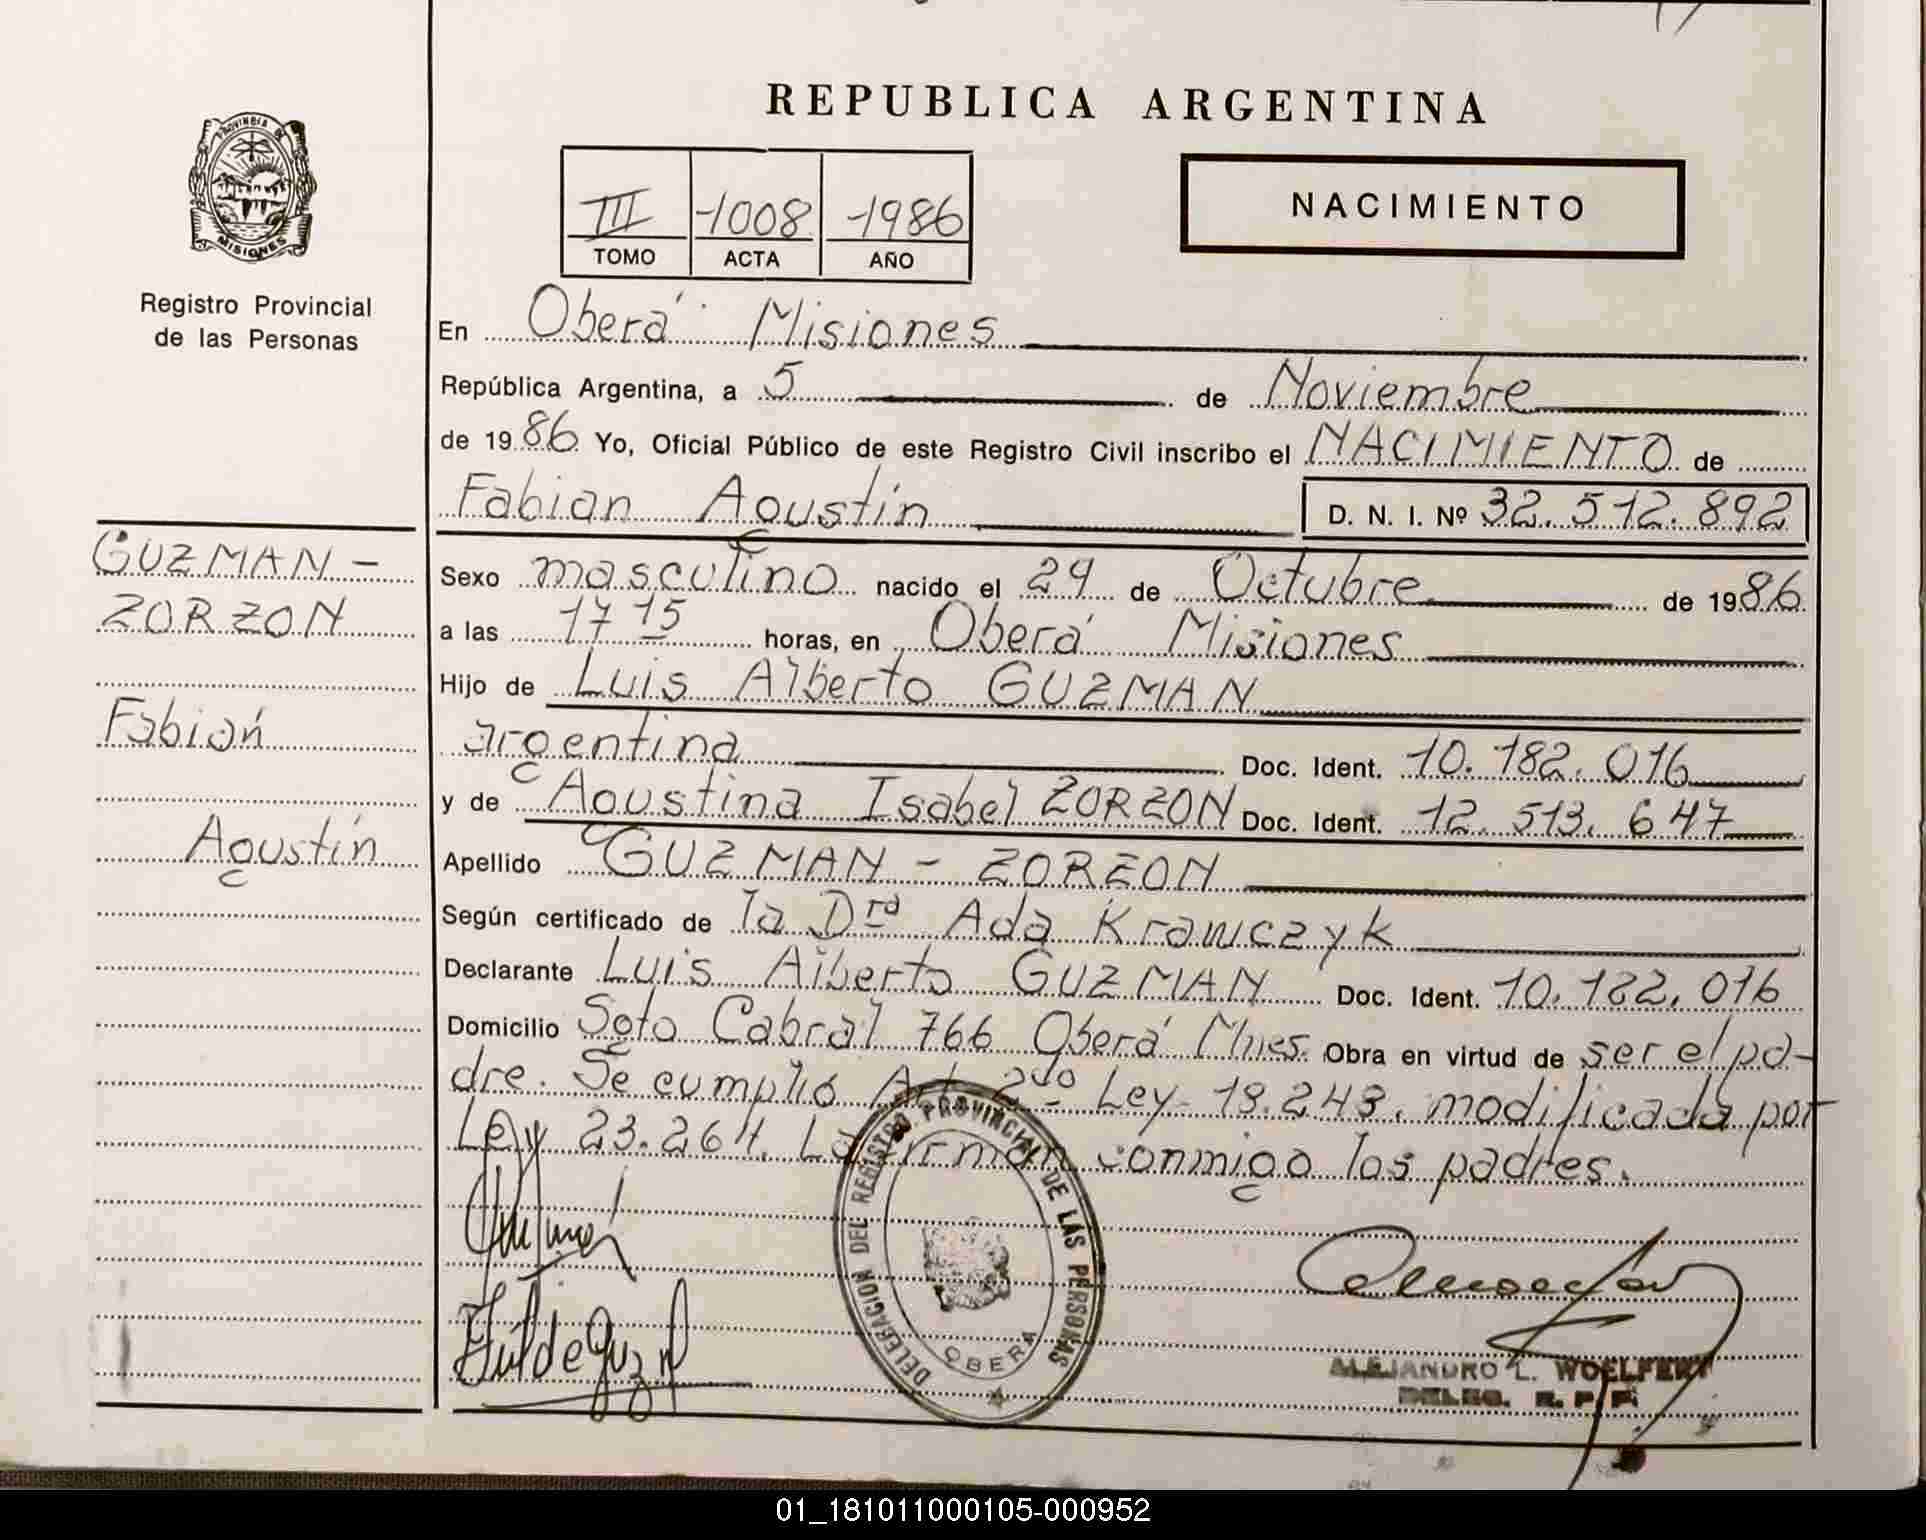 REPUBLICA ARGENTINA
PROVINCIA DE
MISIONES
Registro Provincial
de las Personas
III -1008 -1986
TOMO ACTA AÑO
NACIMIENTO
En Oberá Misiones
República Argentina, a 5 de Noviembre
de 1986 Yo, Oficial Público de este Registro Civil inscribo el NACIMIENTO de
Fabian Agustín D. N. I. Nº 32.512.892
GUZMAN -
ZORZON
Fabián
Agustín
Sexo masculino nacido el 29 de Octubre de 1986
a las 17 15 horas, en Oberá Misiones
Hijo de Luis Alberto GUZMAN
argentina Doc. Ident. 10.182.016
y de Agustina Isabel ZORZON Doc. Ident. 12.513.647
Apellido GUZMAN - ZORZON
Según certificado de la Dra Ada Krawczyk
Declarante Luis Alberto GUZMAN Doc. Ident. 10.122.016
Domicilio Soto Cabral 766 Oberá Mnes. Obra en virtud de ser el pa-
dre. Se cumplió Art 2do Ley 18.248. modificada por
Ley 23.264. La firman conmigo los padres.
DELEGACION DEL REGISTRO PROVINCIAL DE LAS PERSONAS
OBERA
ALEJANDRO L. WOELFERT
DELEG. R. P. P.
01_181011000105-000952